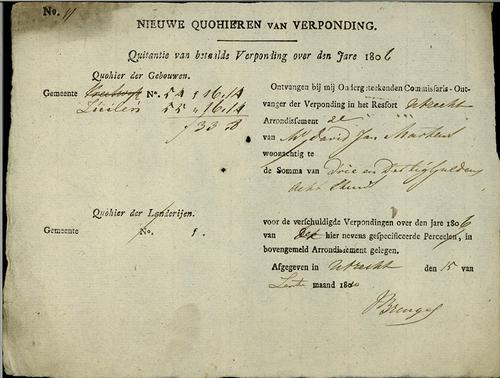 No. 11
NIEUWE QUOHIEREN VAN VERPONDING.
Quitantie van betaalde Verponding over den Jare 1806
Quohier der Gebouwen.
Gemeente No. 54 16.14
Zuilen 55 " 16.14
f 33 8
Ontvangen bij mij Ondergeteekenden Commissaris-Ont-
vanger der Verponding in het Ressort Utrecht
Arrondissement 2e
van Mr David Jan Martens
woonachtig te
de Somma van Drie en Dertig Guldens
acht Stuiv
Quohier der Landerijen.
Gemeente No. 1.
voor de verschuldigde Verpondingen over den Jare 1806
van hier nevens gespecificeerde Perceelen, in
bovengemeld Arrondissement gelegen.
Afgegeven in Utrecht den 15 van
Lente maand 18